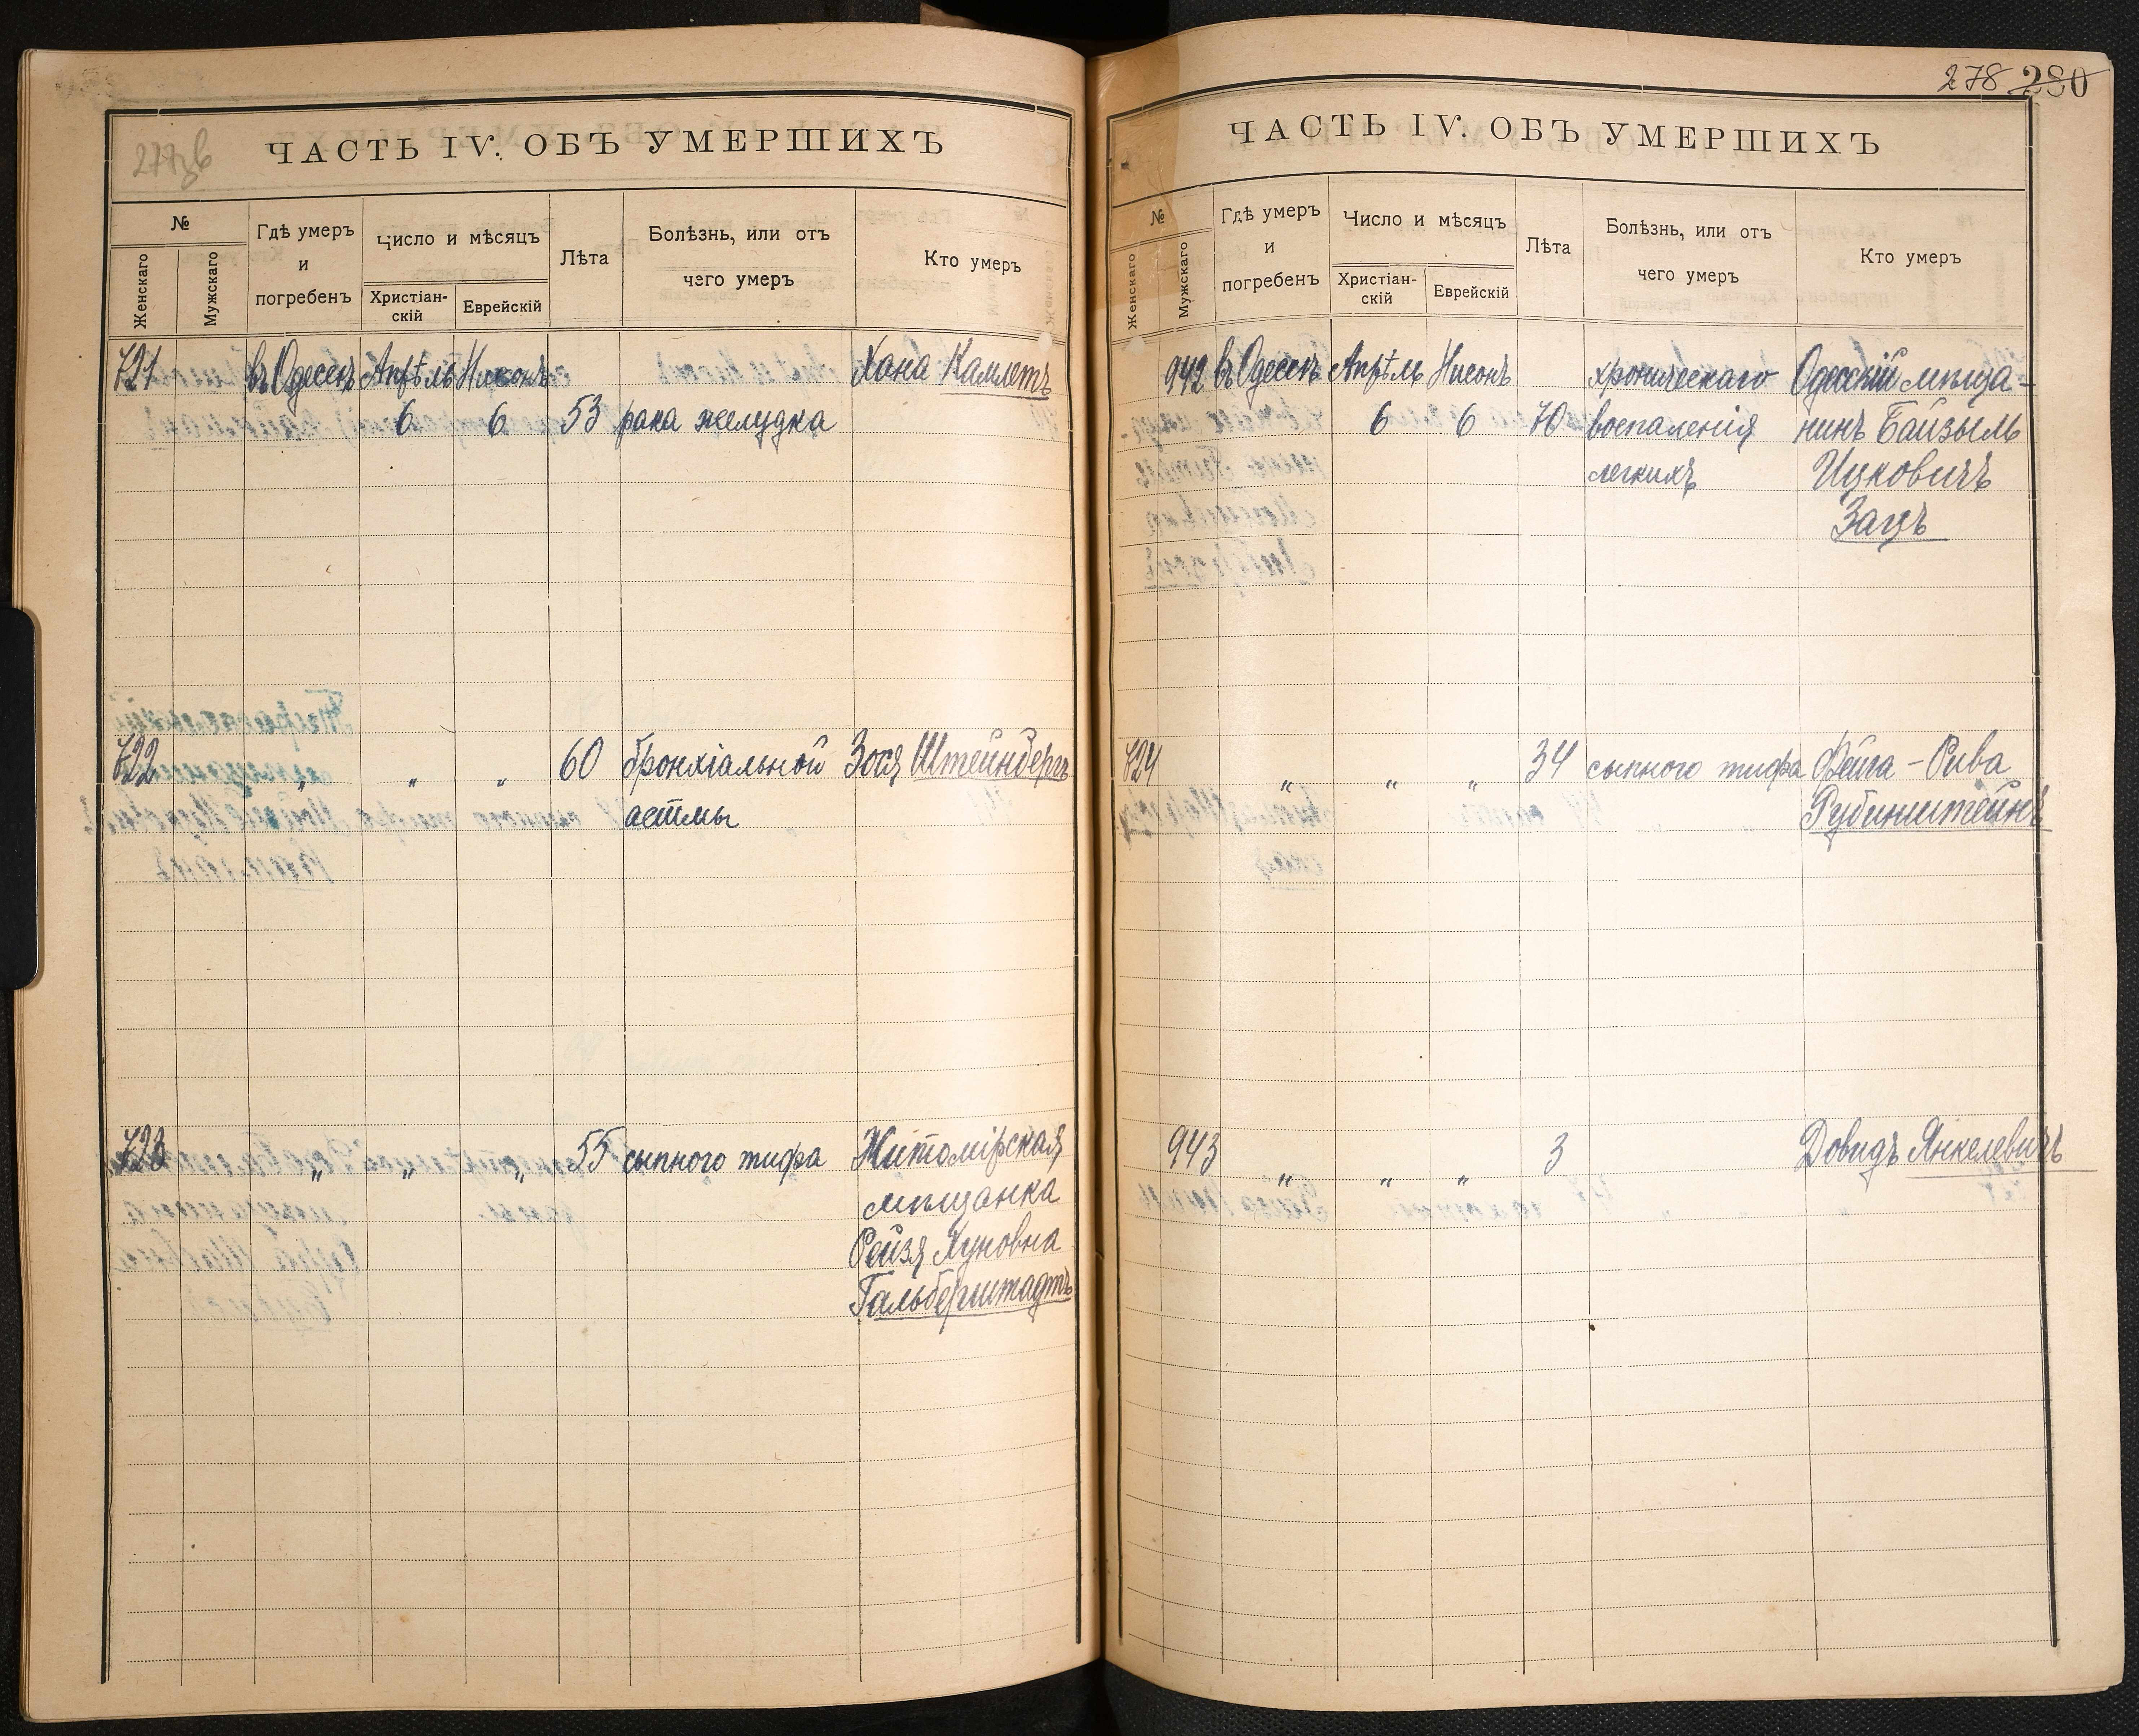 277об
ЧАСТЬ IV. ОБЪ УМЕРШИХЪ
№
Женскаго
Мужскаго
Гдѣ умеръ
и
погребенъ
Число и мѣсяцъ
Христіан-
скій
Еврейскій
Лѣта
Болѣзнь, или отъ
чего умеръ
Кто умеръ
721 въ Одессѣ Апрѣль Нисонъ Хана Камлетъ
6 6 53 рака желудка
722 „ „ „ 60 бронхіальной Зося Штейнбергъ
астмы
723 „ „ „ 55 сыпного тифа Житомірская
мѣщанка
Рейзя Хуновна
Гальберштадтъ
278 280
ЧАСТЬ IV. ОБЪ УМЕРШИХЪ
№
Женскаго
Мужскаго
Гдѣ умеръ
и
погребенъ
Число и мѣсяцъ
Христіан-
скій
Еврейскій
Лѣта
Болѣзнь, или отъ
чего умеръ
Кто умеръ
942 въ Одессѣ Апрѣль Нисонъ хроническаго Одесскій мѣща-
6 6 70 воспаленія нинъ Байзыль
легкихъ Ицковичъ
Зацъ
724 „ „ „ 34 сыпного тифа Фейга-Рива
Рубинштейнъ
943 „ „ „ 3 Довидъ Янкелевичъ